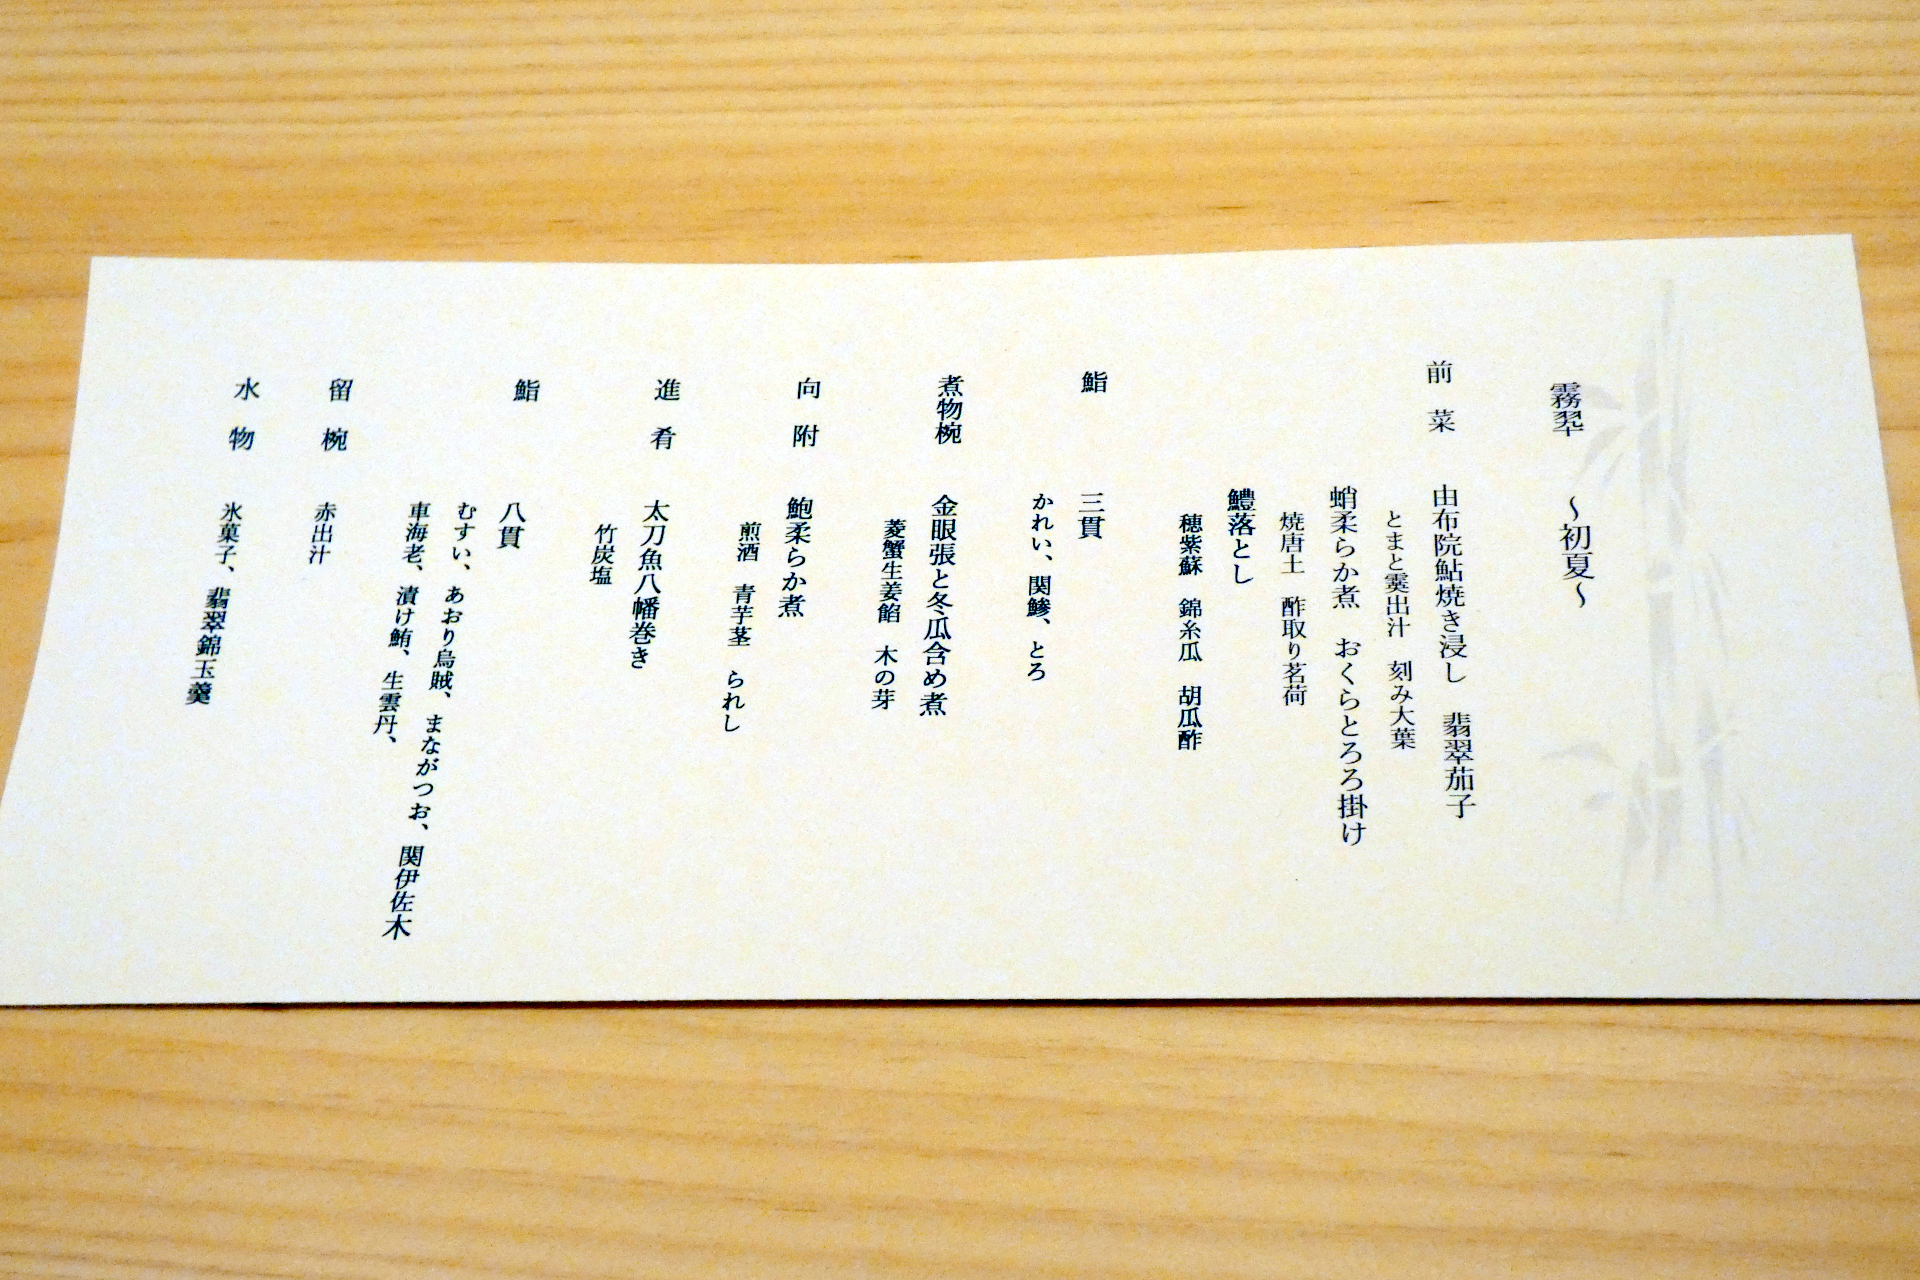 霧翆 ～初夏～
前菜 由布院鮎焼き浸し 翡翠茄子
とまと霙出汁 刻み大葉
蛸柔らか煮 おくらとろろ掛け
焼唐土 酢取り茗荷
鱧落とし
穂紫蘇 錦糸瓜 胡瓜酢
鮨 三貫
かれい、関鯵、とろ
煮物椀 金眼張と冬瓜含め煮
菱蟹生姜餡 木の芽
向附 鮑柔らか煮
煎酒 青芋茎 られし
進肴 太刀魚八幡巻き
竹炭塩
鮨 八貫
むすい、あおり烏賊、まながつお、関伊佐木
車海老、漬け鮪、生雲丹、
留椀 赤出汁
水物 氷菓子、翡翠錦玉羹